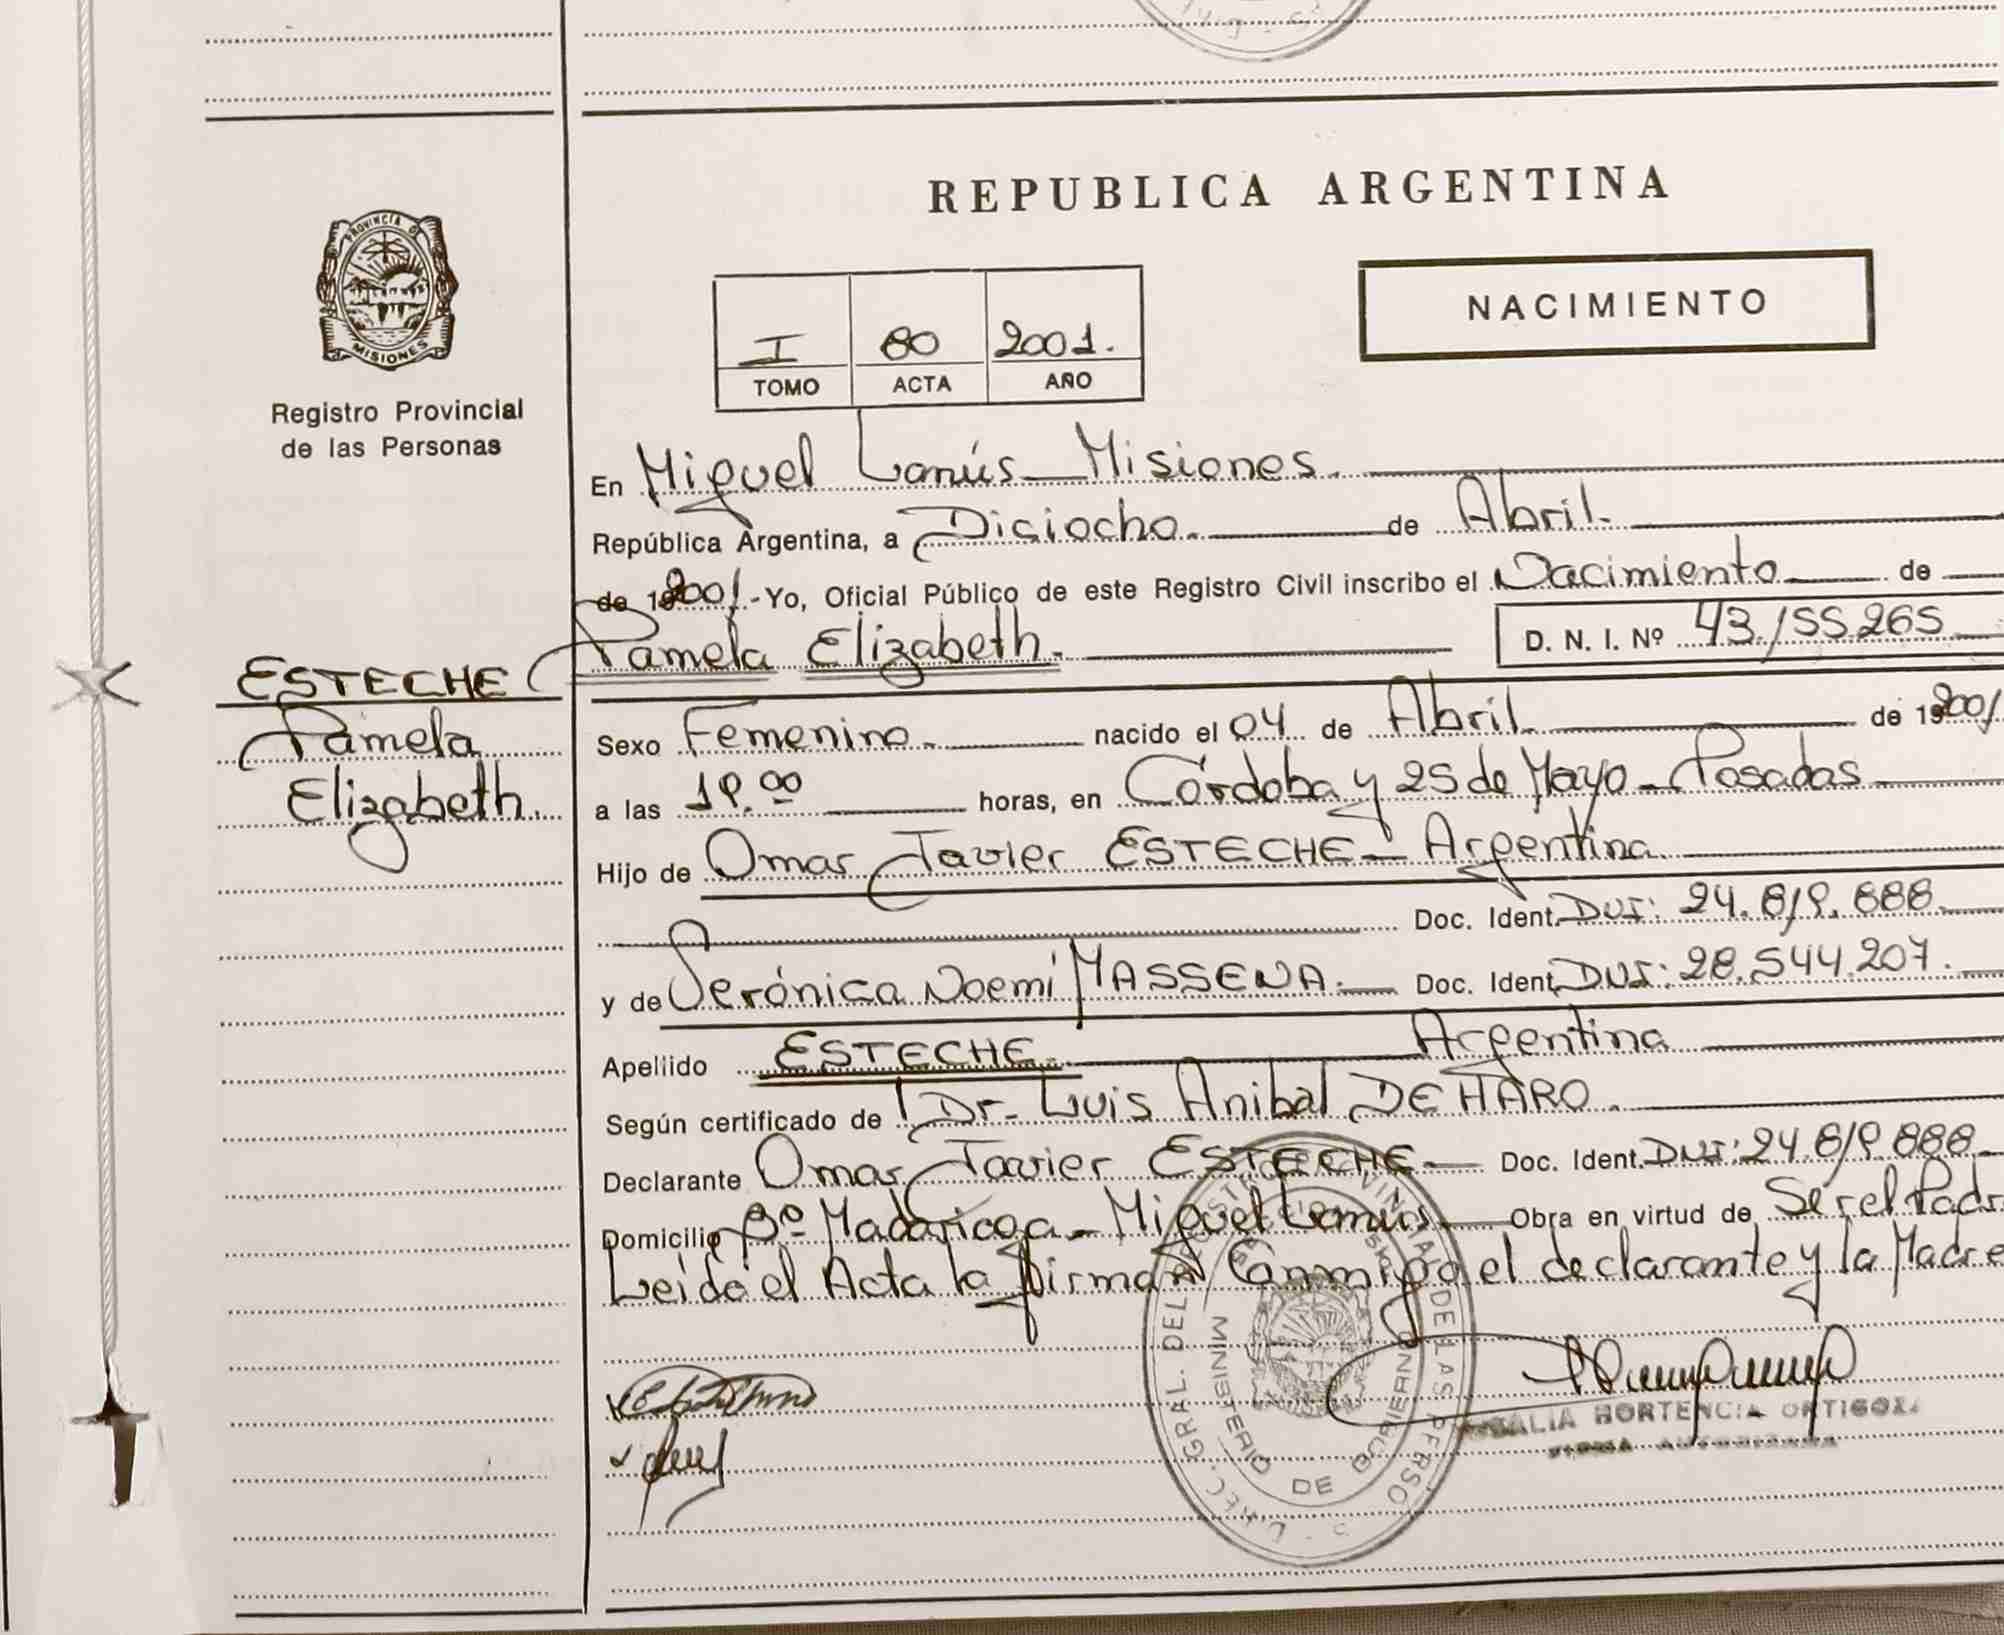 REPUBLICA ARGENTINA
PROVINCIA DE
MISIONES
Registro Provincial
de las Personas
NACIMIENTO
I 80 2001.
TOMO ACTA AÑO
En Miguel Lanús - Misiones.
República Argentina, a Diciocho. de Abril.
de 19 2001.- Yo, Oficial Público de este Registro Civil inscribo el Nacimiento de
Pamela Elizabeth. D. N. I. Nº 43.155265
ESTECHE
Pamela
Elizabeth.
Sexo Femenino. nacido el 04 de Abril. de 19 2001
a las horas, en Córdoba y 25 de Mayo - Posadas
Hijo de Omar Javier ESTECHE - Argentina
Doc. Ident. DNI: 24.819.888.
y de Verónica Noemí MASSENA. Doc. Ident. DNI: 28.544.207.
Argentina
Apellido ESTECHE
Según certificado de Dr. Luis Anibal DE HARO.
Declarante Omar Javier ESTECHE Doc. Ident. DNI: 24.819.888
Domicilio Bº Madariaga - Miguel Lanús Obra en virtud de Ser el Padre
Leido el Acta la firman Conmigo el declarante y la Madre
MINISTERIO DE GOBIERNO
HORTENCIA ORTIGOZA
FIRMA AUTORIZADA